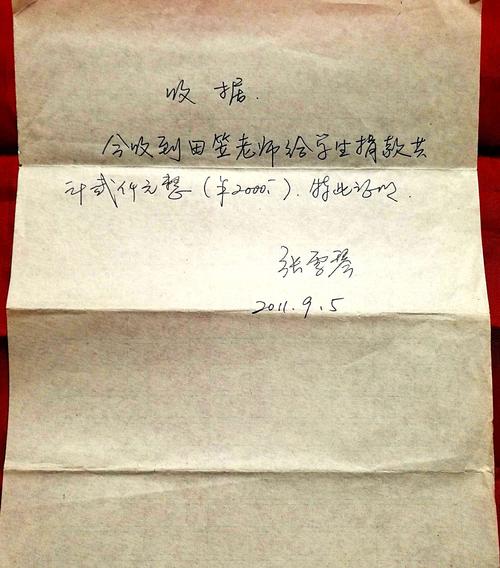 收 据.
今收到田笠老师给学生捐款共
计贰仟元整(¥2000元). 特此证明.
张雪琴
2011.9.5